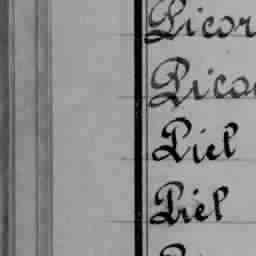 Picor
Pico
Piel
Piel